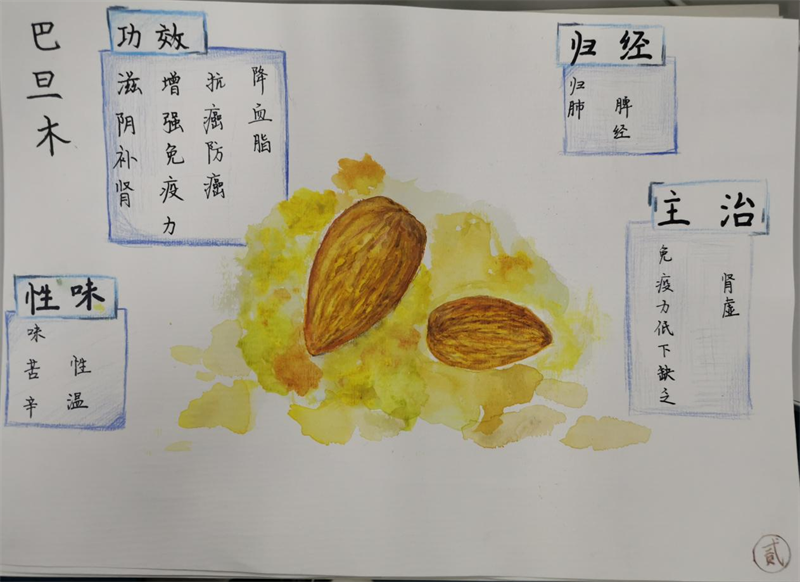 巴旦木
功效
滋阴补肾
增强免疫力
抗癌防癌
降血脂
归经
归肺
脾经
主治
免疫力低下缺乏
肾虚
性味
味苦辛
性温
贰